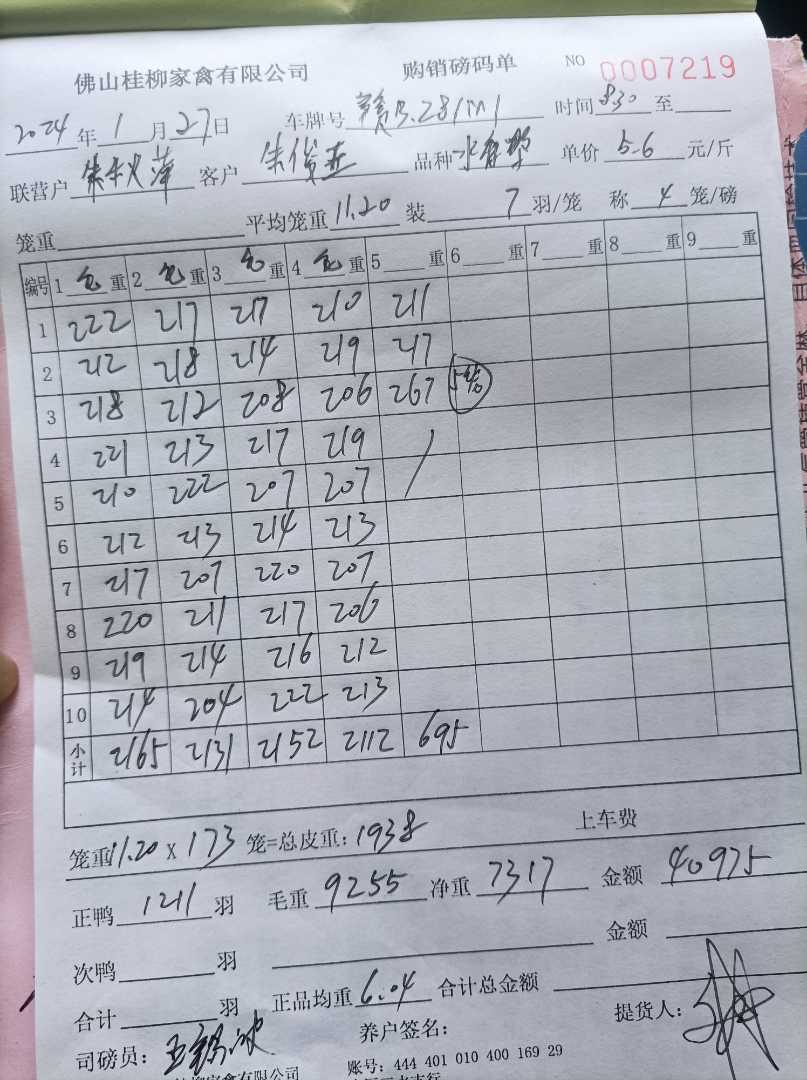 佛山桂柳家禽有限公司 购销磅码单 NO 0007219
2024年1月27日 车牌号 时间830至
联营户 客户 品种 单价5.6元/斤
笼重 平均笼重11.20 装7羽/笼 称4笼/磅
编号 1 毛重 2 毛重 3 毛重 4 毛重 5 重 6 重 7 重 8 重 9 重
1 222 217 217 210 211
2 212 218 214 219 217
3 218 212 208 206 267 5笼
4 221 213 217 219
5 210 222 207 207
6 212 213 214 213
7 217 207 220 207
8 220 211 217 206
9 219 214 216 212
10 214 204 222 213
小计 2165 2131 2152 2112 695
笼重11.20 X 173笼=总皮重:1938 上车费
正鸭1211羽 毛重9255 净重7317 金额40975
次鸭 羽 金额
合计 羽 正品均重6.04 合计总金额
司磅员: 养户签名: 提货人:
账号: 444 401 010 400 169 29